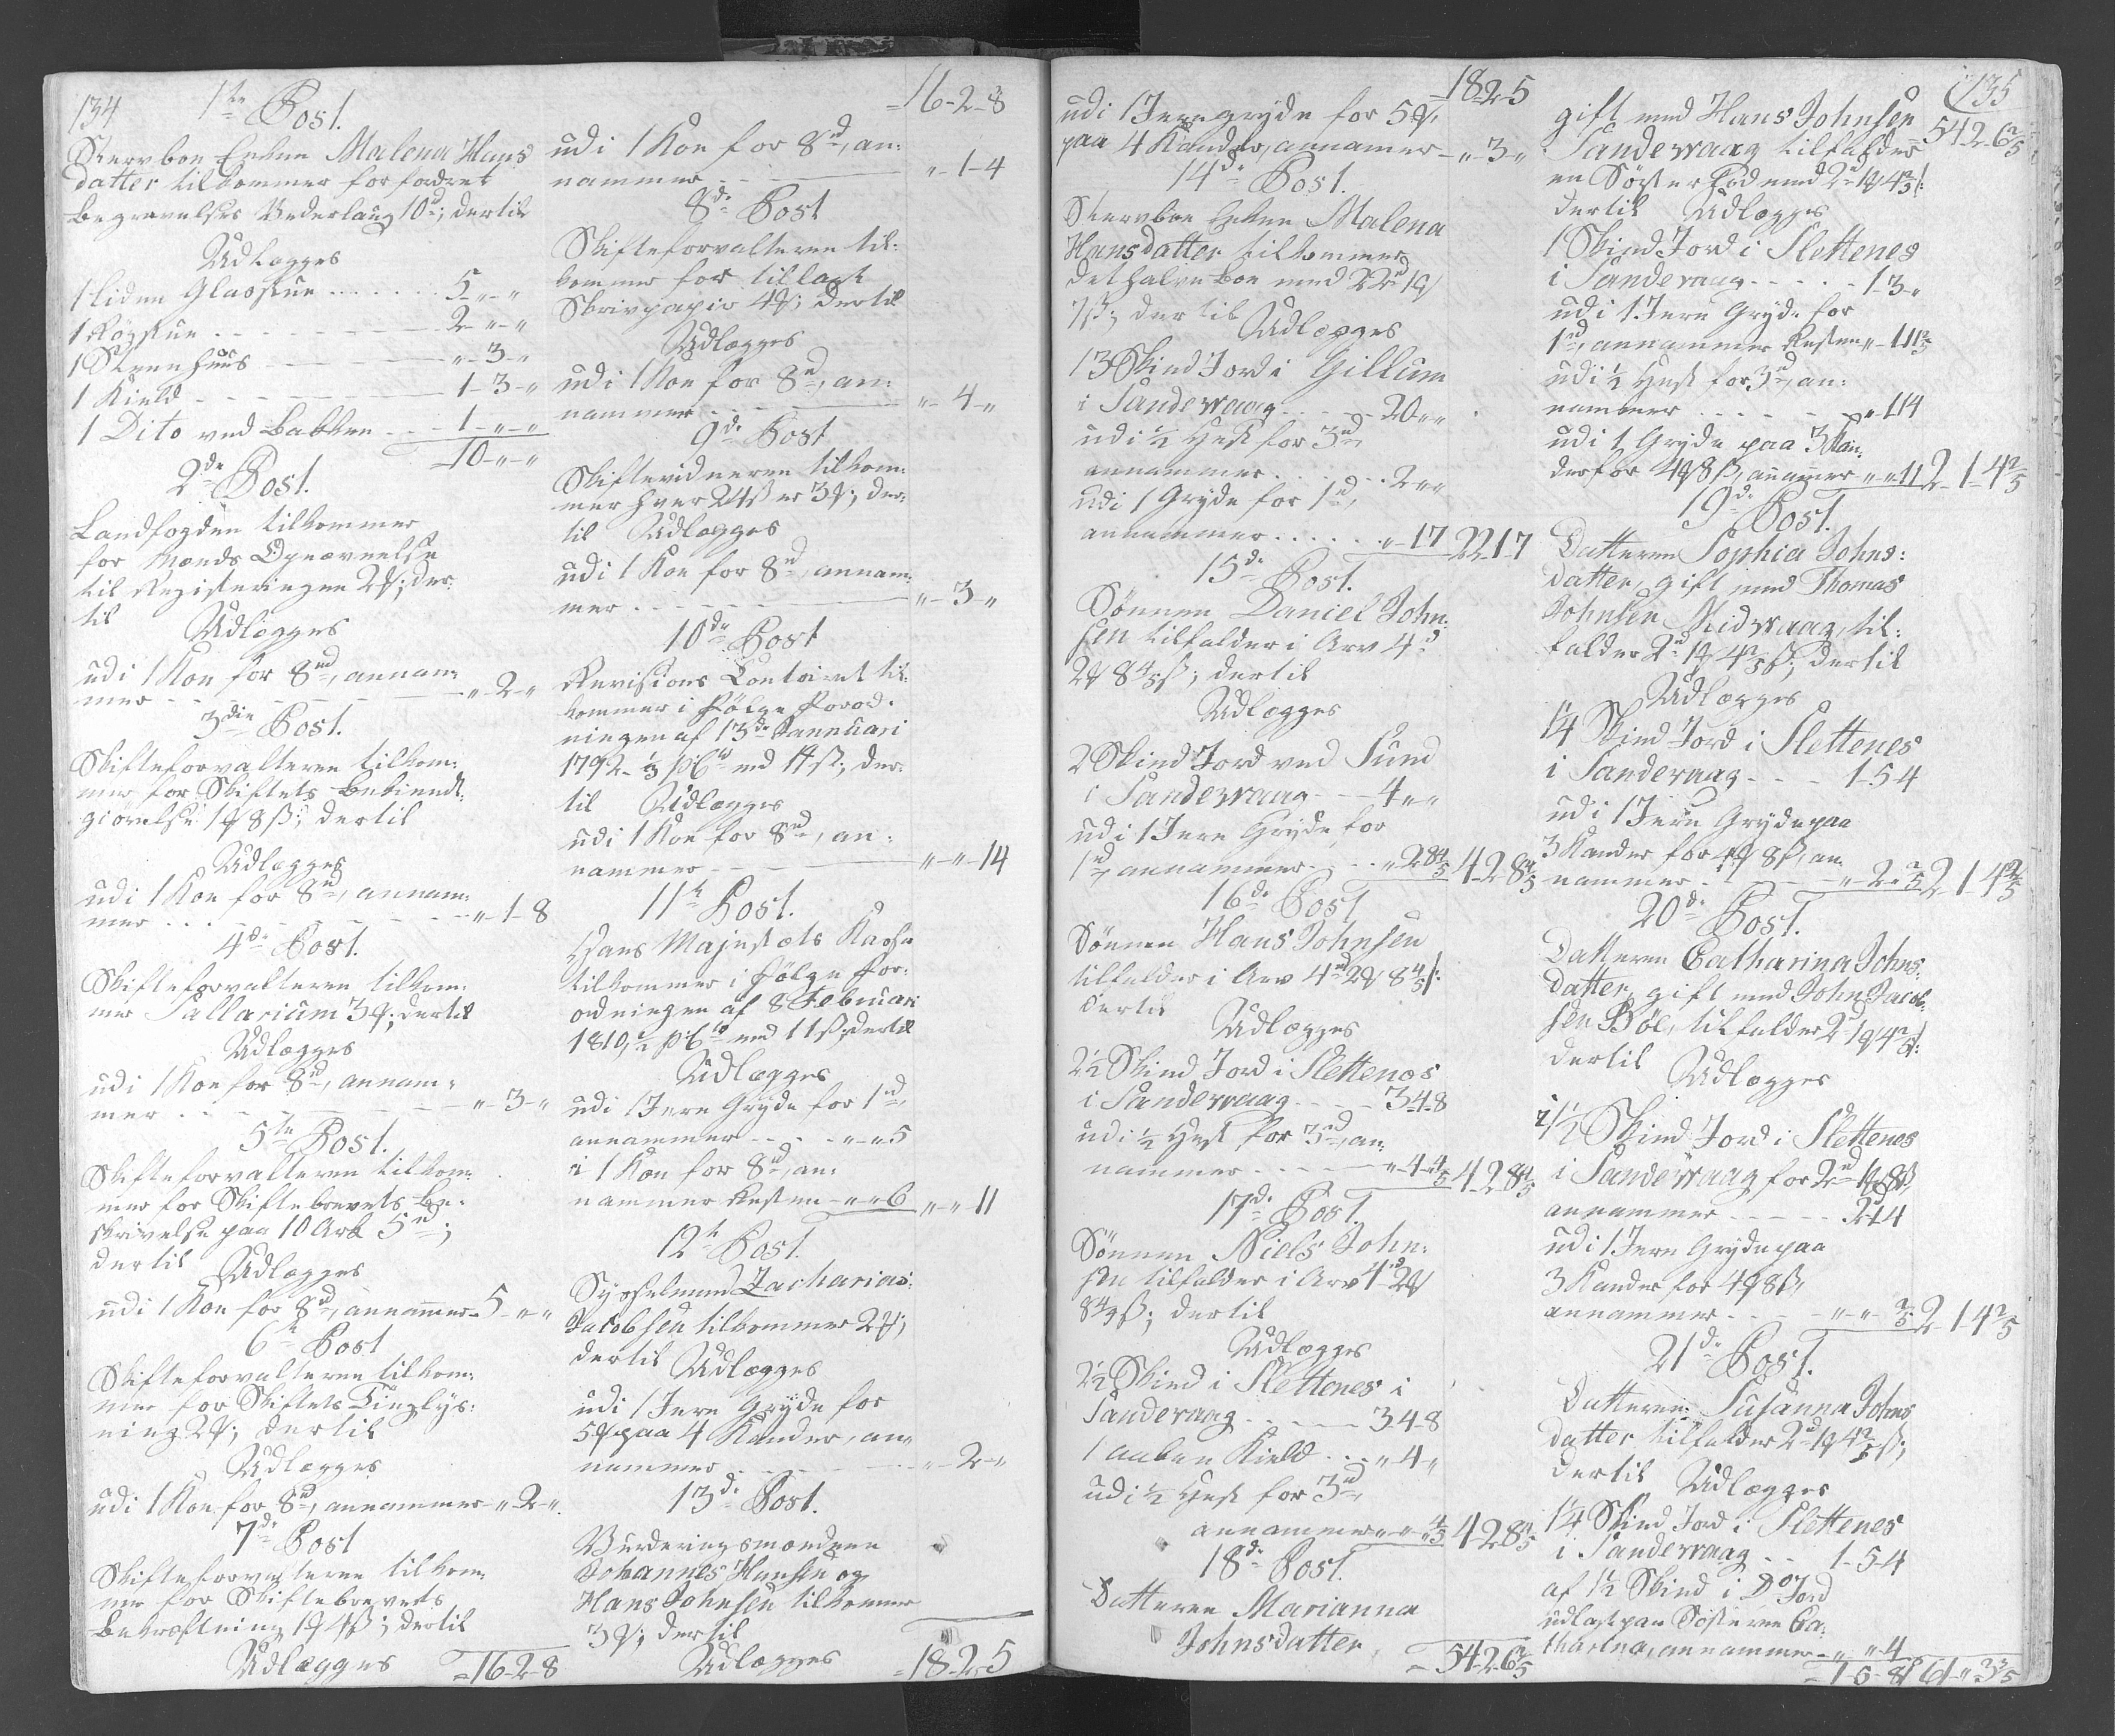 134
1te Post.
Stervboe Enken Malena Hans
datter tilkommer for fordret
Begravelses Vederlaug 10rd; dertil
Udlægges
1 liden Glasstue . . . . . 5-"-"
1 Røgstue - - - - - - 2-"-"
1 Steenhuus - - - "-3-"
1 Kield - - - - - - 1-3-"
1 Dito ved Bakken - - - 1-"-"
10-"-"
2de Post.
Landfogden tilkommer
for Mænds Opnævnelse
til Registeringen 2ɱ; der-
til
Udlægges
udi 1 Koe for 8rd, annam-
mer - - - - "-2-"
3die Post.
Skifteforvalteren tilkom-
mer for Skiftets Bekiendt-
giørelse 1ɱ 8ß; dertil
Udlægges
udi 1 Koe for 8rd, annam-
mer . . . - - - - "-1-8
4de Post.
Skifteforvalteren tilkom-
mer Sallarium 3ɱ; dertil
Udlægges
udi 1 Koe for 8rd, annam-
mer - - - - "-3-"
5te Post.
Skifteforvalteren tilkom-
mer for Skiftebrevets Be-
skrivelse paa 10 Ark 5rd;
dertil
Udlægges
udi 1 Koe for 8rd, annammer- 5-"-"
6te Post
Skifteforvalteren tilkom-
mer for Skiftets Tinglys-
ning 2ɱ; dertil
Udlægges
udi 1 Koe for 8rd, annammer-"-2-"
7de Post
Skifteforvalteren tilkom-
mer for Skiftebrevets
Bekræftning 1ɱ 4ß; dertil
Udlægges
=16-2-8
=16-2-8
udi 1 Koe for 8rd, an-
nammer - - - "-1-4
8de Post
Skifteforvalteren til-
kommer for tillagt
Skrivpapir 4ɱ; dertil
Udlægges
udi 1 Koe for 8rd, an-
nammer - - - "-4-"
9de Post
Skiftevidneren tilkom-
mer hver 24ß er 3ɱ; der-
til Udlægges
udi 1 Koe for 8rd, annam-
mer . . . . "-3-"
10de Post
Revisions Contoiret til-
kommer i Følge Forord-
ningen af 13de Jannuari
1792 - 1/3 pCto med 14ß; der-
til Udlægges
udi 1 Koe for 8rd, an-
nammer - - - "-"-14
11te Post.
Hans Majestæts Kasse
tilkommer i Følge For-
ordningen af 8 Februari
1810, 1/2 pCto med 11ß; dertil
Udlægges
udi 1 Jern Gryde for 1rd,
annammer - - . . "-"-5
i 1 Koe for 8rd, an-
nammer Resten - "-"-6 "-"-11
12te Post.
Sysselmand Zacharias
Jacobsen tilkommer 2ɱ;
dertil Udlægges
udi 1 Jern Gryde for
5ɱ paa 4 Kander, an-
nammer - - - "-2-"
13de Post.
Vurderingsmændene
Johannes Hansen og
Hans Johnsen tilkommer
3ɱ; dertil
Udlægges
=18-2-5
=18-2-5
udi 1 Jerngryde for 5ɱ,
paa 4 Kander, annamer - "-3-"
14de Post.
Stervboe Enken Malena
Hansdatter tilkommer
det halve Boe med 22rd 1ɱ
7ß; dertil
Udlægges
13 Skind Jord i Gillum
i Sandevaag - - - 20-"-"
udi 1/2 Hest for 3rd,
annammer . . . . . 2-"-"
udi 1 Gryde for 1rd,
annammer . . . . . "-1-7 22-1-7
15de Post.
Sønnen Daniel John-
sen tilfalder i Arv 4rd
2ɱ 8 4/5ß; dertil
Udlægges
2 Skind Jord ved Sund
i Sandevaag - - 4-"-"
udi 1 Jern Gryde for
1rd, annammer - - "-2-8 4/5 4-2-8 4/5
16de Post
Sønnen Hans Johnsen
tilfalder i Arv 4rd 2ɱ 8 4/5ß;
dertil
Udlægges
2 1/2 Skind Jord i Slettenes
i Sandevaag - - - 3-4-8
udi 1/2 Hest for 3rd, an-
nammer - - - - "-4-4/5 4-2-8 4/5
17de Post.
Sønnen Niels John-
sen tilfalder i Arv 4rd 2ɱ
8 4/5ß; dertil
Udlægges
2 1/2 Skind i Slettenes i
Sandevaag - - - - 3-4-8
1 aaben Kield . . . "-4-"
udi 1/2 Hest for 3rd,
annammer "-"-4/5 4-2-8 4/5
18de Post.
Datteren Marianna
Johnsdatter,
=54-2-6 2/5
135
gift med Hans Johnsen
Sandevaag tilfalder 54-2-6 2/5
en Søster Lod med 2rd 1ɱ 4 2/5ß;
dertil Udlægges
1 Skind Jord i Slettenes
i Sandevaag - - - - 1-3-"
udi 1 Jern Gryde for
1rd, annammer Resten "-1-11 2/5
udi 1/2 Hest for 3rd, an-
nammer . . . . . "-1-14
udi 1 Gryde paa 3 Kan-
der for 4ɱ 8ß, annamer "-"-11 2-1-4 2/5
19de Post.
Datteren Sophia Johns-
datter, gift med Thomas
Johnsen Midvaag, til-
falder 2rd 1ɱ 4 2/5ß; dertil
Udlægges
1 1/4 Skind Jord i Slettenes
i Sandevaag - - - 1-5-4
udi 1 Jern Gryde paa
3 Kander for 4ɱ 8ß, an-
nammer - - - "-2-2/5 2-1-4 2/5
20de Post.
Datteren Catharina Johns-
datter, gift med John Jacob-
sen Bøe, tilfalder 2rd 1ɱ 4 2/5ß;
dertil Udlægges
1 1/2 Skind Jord i Slettenes
i Sandevaag for 2rd 1ɱ 8ß,
annammer - - - - 2-1-4
udi 1 Jern Gryde paa
3 Kander for 4ɱ 8ß,
annammer - - - "-"-2/5 2-1-4 2/5
21de Post.
Datteren Susanna Johns
datter tilfalder 2rd 1ɱ 4 2/5ß;
dertil Udlægges
1 1/4 Skind Jord i Slettenes
i Sandevaag - - 1-5-4
af 1 1/2 Skind i Do Jord
udlagt paa Søsteren Ca-
tharina, annammer - "-"-4
=1-5-8 61-"-3 3/5